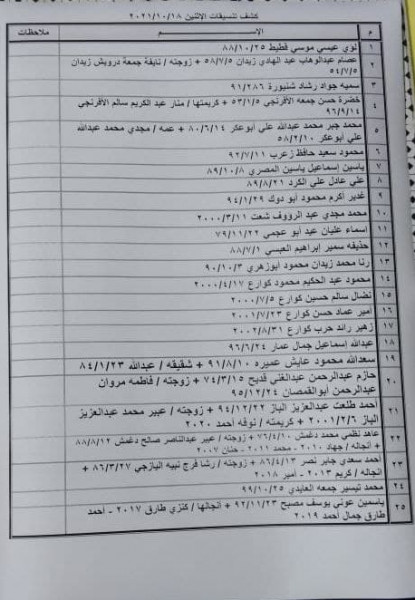 كشف تنسيقات الاثنين ٢٠٢١/١٠/١٨
م الاســـــم ملاحظات
١ لؤي عيسي موسي قطيط ٨٨/١٠/٢٥
٢ عصام عبدالوهاب عبد الهادي زيدان ٥٨/٧/٥ + زوجته / نايفة جمعة درويش زيدان
٥٤/٧/٥
٣ سميه جواد رشاد شنبورة ٩١/٢٨٦
٤ خضرة حسن جمعه الأفرنجي ٥٣/١/٥ + كريمتها / منار عبد الكريم سالم الأفرنجي
٩٦/٩/١٤
٥ محمد جبر محمد عبدالله علي أبو عكر ٨٠/٦/١٤ + عمه / مجدي محمد عبدالله
علي أبوعكر ٥٨/٢/١٠
٦ محمود سعيد حافظ زعرب ٩٢/٧/١١
٧ ياسين إسماعيل ياسين المصري ٨٩/١٠/٨
٨ علي عادل علي الكرد ٨٩/٨/٢١
٩ غدير أكرم محمود أبو دوك ٩٤/١/٢٩
١٠ محمد مجدي عبد الرؤوف شعت ٢٠٠٠/٣/١١
١١ اسماء عليان عيد أبو عجمي ٧٩/١١/٢٢
١٢ حذيفه سمير إبراهيم العبسي ٨٨/٧/١
١٣ رنا محمد زيدان محمود ابوزهري ٩٠/١٠/٣
١٤ محمود عبد الحكيم محمود كوارع ٢٠٠٠/٤/١٧
١٥ نضال سالم حسين كوارع ٢٠٠٠/٧/٥
١٦ أمير عماد حسن كوارع ٢٠٠١/٧/٢٣
١٧ زهير رائد حرب كوارع ٢٠٠٢/٨/٣١
١٨ عبدالله إسماعيل جمال عمار ٩٦/٦/٢٤
١٩ سعدالله محمود عايش عميره ٩١/٨/١٠ + شقيقه / عبدالله ٨٤/١/٢٣
٢٠ حازم عبدالرحمن عبدالغني قديح ٧٤/٣/١٥ + زوجته / فاطمه مروان
عبدالرحمن أبوالقمصان ٩٥/١٢/٢٤
٢١ أحمد طلعت عبدالعزيز الباز ٩٤/١٢/٢٢ + زوجته / عبير محمد عبدالعزيز
الباز ٢٠٠١/٢/٦ + كريمته / نوفه أحمد ٢٠٢٠
٢٢ عاهد نظمي محمد دغمش ٧٦/٤/١٠ + زوجته / عبير عبدالناصر صالح دغمش ٨٨/٨/١٢
+ أنجاله / جهاد ٢٠١٠ - محمد ٢٠١١ - حنان ٢٠٠٧
٢٣ أحمد سعدي جابر نصر ٨٦/٤/١٣ + زوجته / رشا فرج نبيه اليازجي ٨٦/٣/٢٧ +
أنجاله / كريم ٢٠١٣ - أمير ٢٠١٨
٢٤ محمد تيسير جمعه العايدي ٩٩/١٠/٢٥
٢٥ ياسمين عوني يوسف مصبح ٩٢/١١/٢٣ + أنجالها / كنزي طارق ٢٠١٧ - أحمد
طارق جمال أحمد ٢٠١٩